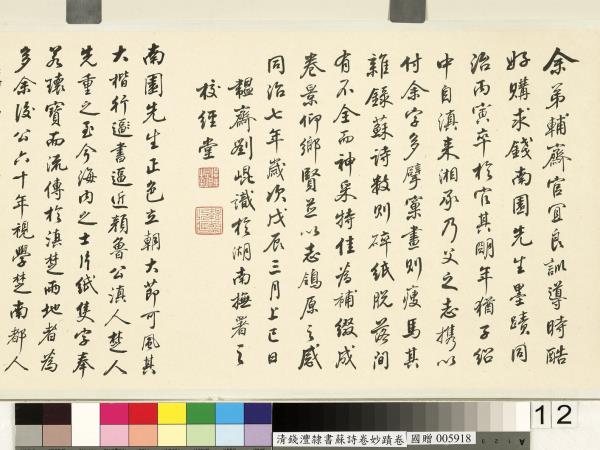 余弟輔齋官宜良訓導時酷
好購求錢南園先生墨蹟同
治丙寅卒於官其明年猶子紹
中自滇来湘承乃父之志携以
付余字多擘窠畫則瘦馬其
雜錄蘇詩数則碎紙脱落間
有不全而神采特佳為補綴成
卷景仰鄉賢並以志鴒原之感
同治七年歲次戊辰三月上巳日
韞齋劉崐識於湖南撫署之
校經堂
南園先生正色立朝大節可風其
大楷行逼書逼近顏魯公滇人楚人
先重之至今海内之士片紙隻字奉
若瓌寳而流傳於滇楚兩地者為
多余後公六十年視學楚南都人
12
清錢灃隸書蘇詩卷妙蹟卷
國贈 005918